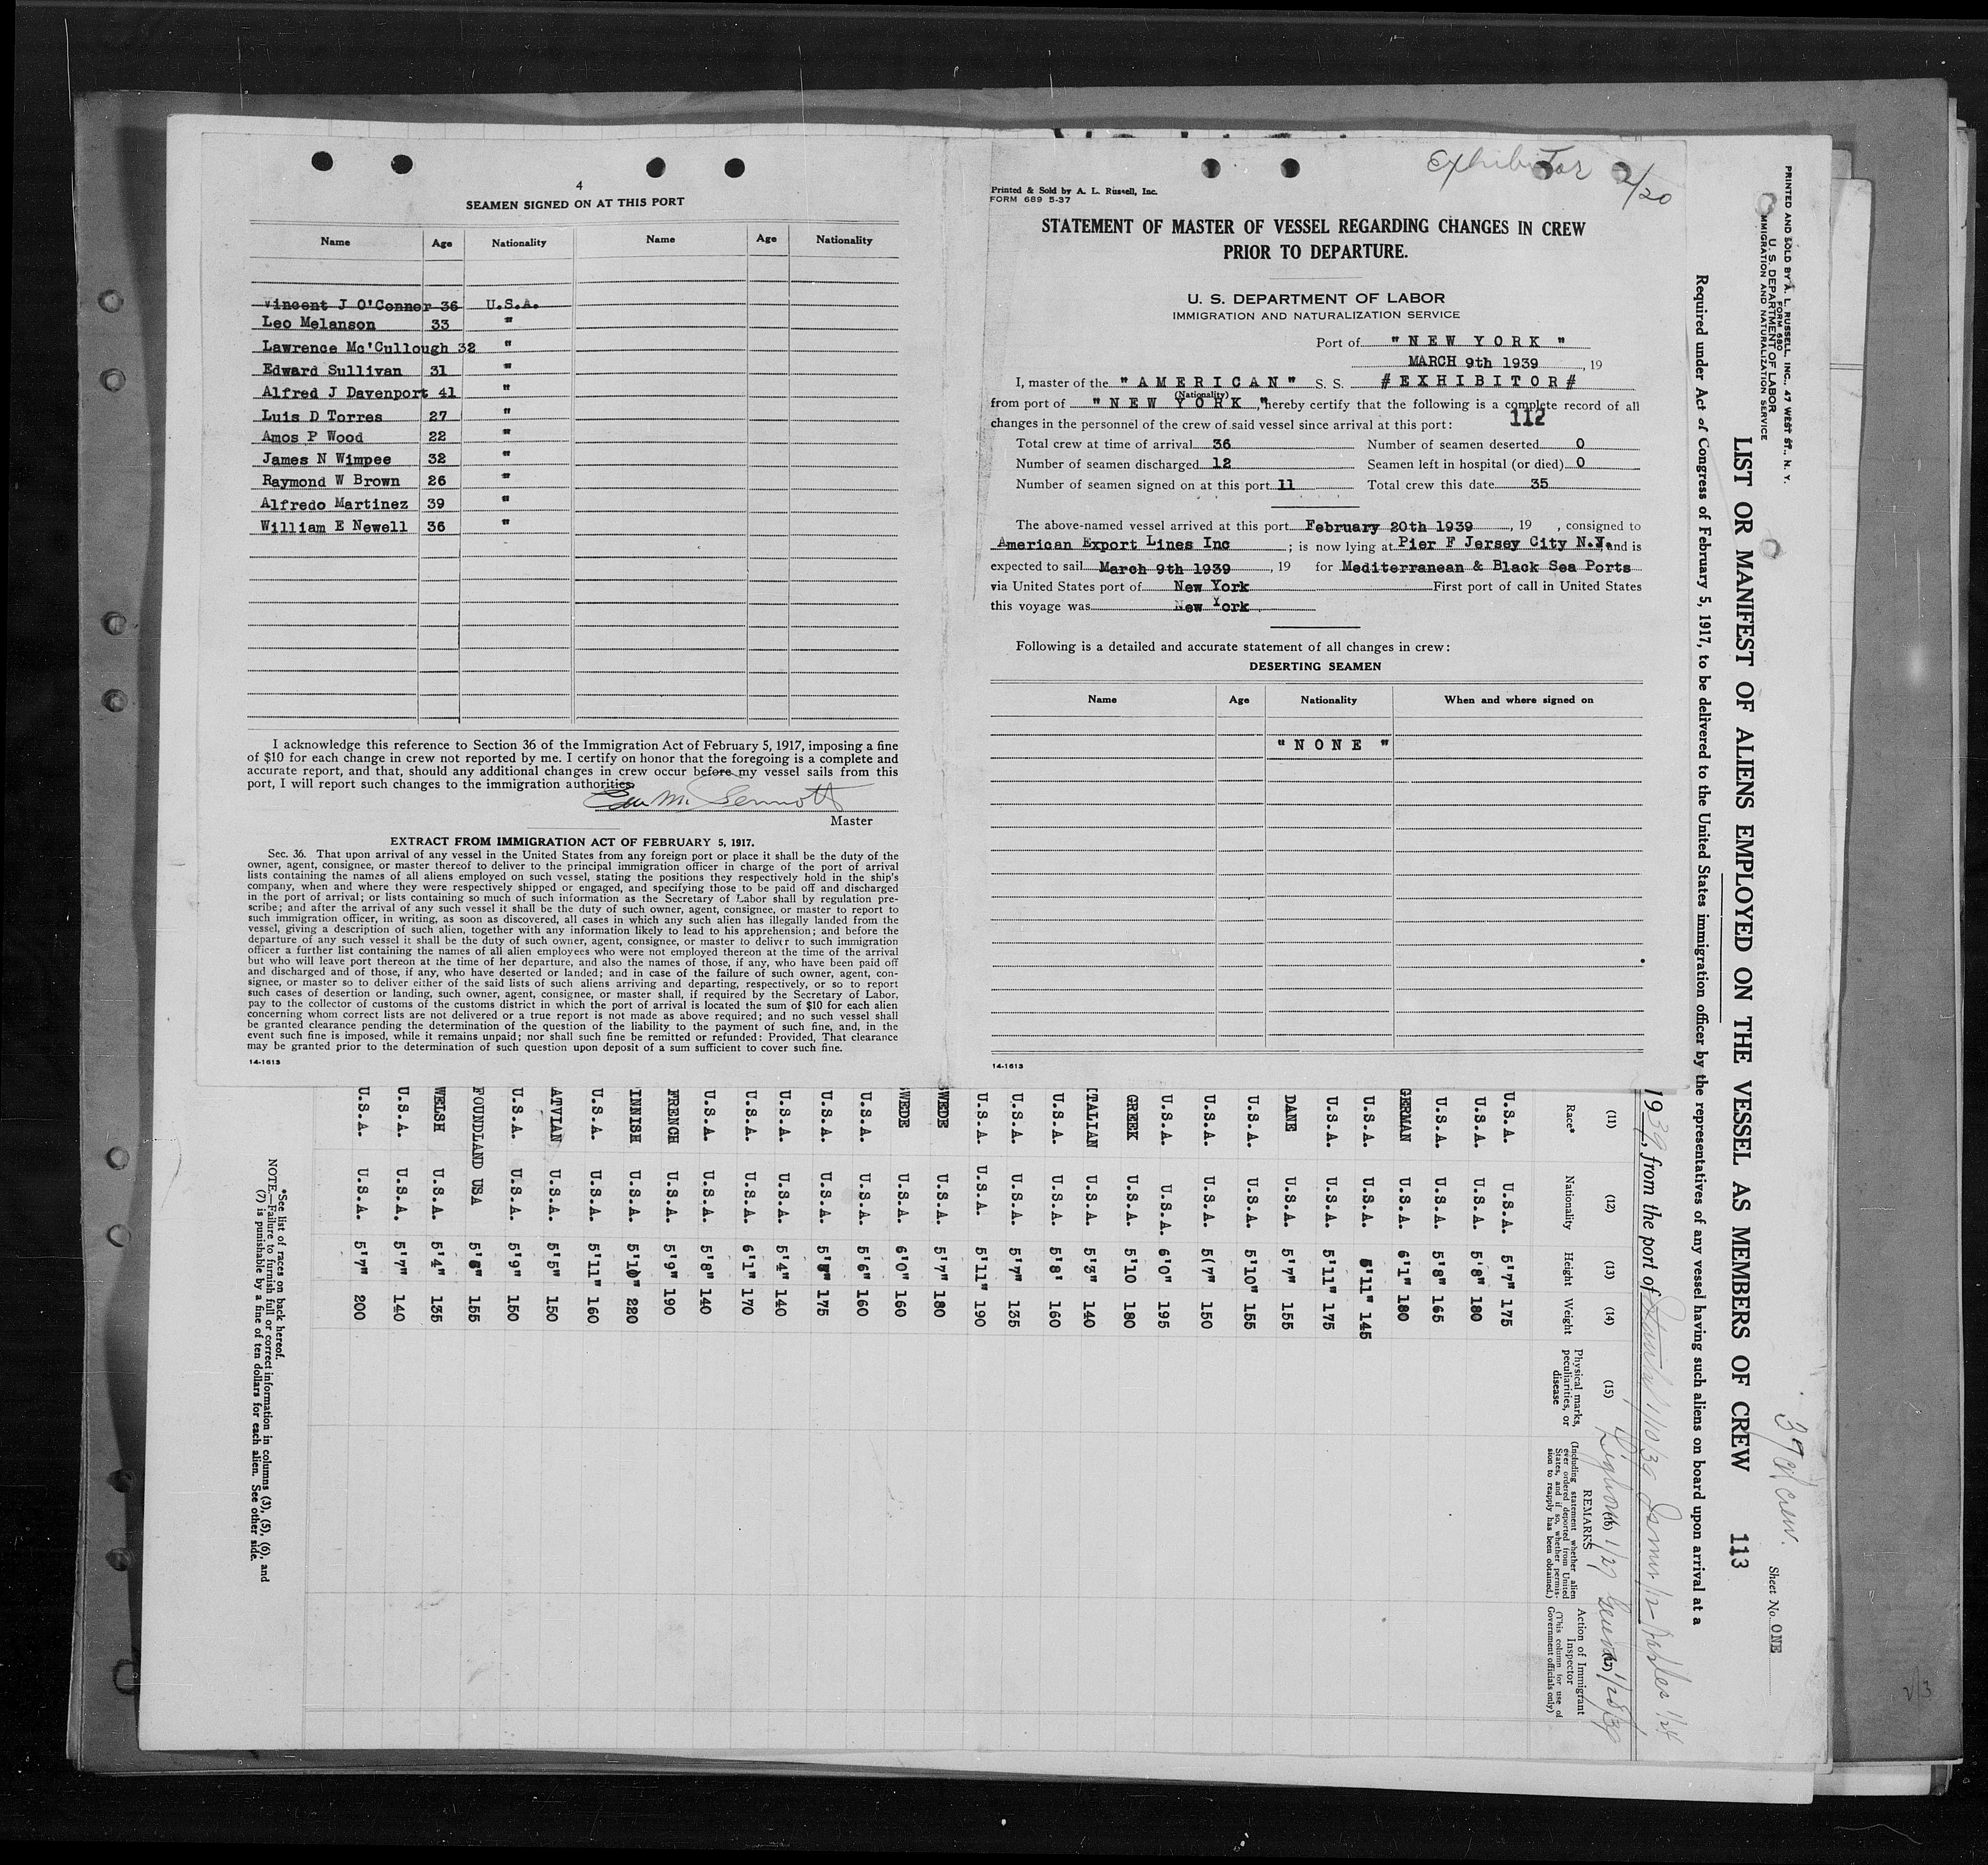 4
SEAMEN SIGNED ON AT THIS PORT
Name Age Nationality Name Age Nationality
Vincent J O'Conner 36 U.S.A.
Leo Melanson 33 "
Lawrence Mc'Cullough 32 "
Edward Sullivan 31 "
Alfred J Davenport 41 "
Luis D Torres 27 "
Amos P Wood 22 "
James N Wimpee 32 "
Raymond W Brown 26 "
Alfredo Martinez 39 "
William E Newell 36 "
I acknowledge this reference to Section 36 of the Immigration Act of February 5, 1917, imposing a fine
of $10 for each change in crew not reported by me. I certify on honor that the foregoing is a complete and
accurate report, and that, should any additional changes in crew occur before my vessel sails from this
port, I will report such changes to the immigration authorities.
Master
EXTRACT FROM IMMIGRATION ACT OF FEBRUARY 5, 1917.
Sec. 36. That upon arrival of any vessel in the United States from any foreign port or place it shall be the duty of the
owner, agent, consignee, or master thereof to deliver to the principal immigration officer in charge of the port of arrival
lists containing the names of all aliens employed on such vessel, stating the positions they respectively hold in the ship's
company, when and where they were respectively shipped or engaged, and specifying those to be paid off and discharged
in the port of arrival; or lists containing so much of such information as the Secretary of Labor shall by regulation pre-
scribe; and after the arrival of any such vessel it shall be the duty of such owner, agent, consignee, or master to report to
such immigration officer, in writing, as soon as discovered, all cases in which any such alien has illegally landed from the
vessel, giving a description of such alien, together with any information likely to lead to his apprehension; and before the
departure of any such vessel it shall be the duty of such owner, agent, consignee, or master to deliver to such immigration
officer a further list containing the names of all alien employees who were not employed thereon at the time of the arrival
but who will leave port thereon at the time of her departure, and also the names of those, if any, who have been paid off
and discharged and of those, if any, who have deserted or landed; and in case of the failure of such owner, agent, con-
signee, or master so to deliver either of the said lists of such aliens arriving and departing, respectively, or so to report
such cases of desertion or landing, such owner, agent, consignee, or master shall, if required by the Secretary of Labor,
pay to the collector of customs of the customs district in which the port of arrival is located the sum of $10 for each alien
concerning whom correct lists are not delivered or a true report is not made as above required; and no such vessel shall
be granted clearance pending the determination of the question of the liability to the payment of such fine, and, in the
event such fine is imposed, while it remains unpaid; nor shall such fine be remitted or refunded: Provided, That clearance
may be granted prior to the determination of such question upon deposit of a sum sufficient to cover such fine.
14-1613
Exhibitor 2/20
Printed & Sold by A. L. Russell, Inc.
FORM 689 5-37
STATEMENT OF MASTER OF VESSEL REGARDING CHANGES IN CREW
PRIOR TO DEPARTURE.
U. S. DEPARTMENT OF LABOR
IMMIGRATION AND NATURALIZATION SERVICE
Port of "NEW YORK"
MARCH 9th 1939, 19
I, master of the "AMERICAN" S. S. #EXHIBITOR#
(Nationality)
from port of "NEW YORK", hereby certify that the following is a complete record of all
changes in the personnel of the crew of said vessel since arrival at this port: 112
Total crew at time of arrival 36 Number of seamen deserted 0
Number of seamen discharged 12 Seamen left in hospital (or died) 0
Number of seamen signed on at this port 11 Total crew this date 35
The above-named vessel arrived at this port February 20th 1939, 19 , consigned to
American Export Lines Inc ; is now lying at Pier F Jersey City N.J. and is
expected to sail March 9th 1939, 19 for Mediterranean & Black Sea Ports
via United States port of New York First port of call in United States
this voyage was New York
Following is a detailed and accurate statement of all changes in crew:
DESERTING SEAMEN
Name Age Nationality When and where signed on
"NONE"
14-1613
PRINTED AND SOLD BY A. L. RUSSELL, INC., 47 WEST ST., N. Y.
FORM 680
U. S. DEPARTMENT OF LABOR
IMMIGRATION AND NATURALIZATION SERVICE
37 of crew.
Sheet No. ONE
LIST OR MANIFEST OF ALIENS EMPLOYED ON THE VESSEL AS MEMBERS OF CREW 113
Required under Act of Congress of February 5, 1917, to be delivered to the United States immigration officer by the representatives of any vessel having such aliens on board upon arrival at a
1939, from the port of
(11) (12) (13) (14) (15) (16) (17)
Race* Nationality Height Weight Physical marks, peculiarities, or disease
REMARKS
(Including statement whether alien ever ordered deported from United States, and if so, whether permission to reapply has been obtained.)
Action of Immigrant Inspector
(This column for use of Government officials only)
U.S.A. U.S.A. 5'7" 175
U.S.A. U.S.A. 5'8" 180
U.S.A. U.S.A. 5'8" 165
GERMAN U.S.A. 6'1" 180
U.S.A. U.S.A. 5'11" 145
U.S.A. U.S.A. 5'11" 175
DANE U.S.A. 5'7" 155
U.S.A. U.S.A. 5'10" 155
U.S.A. U.S.A. 5(7" 150
U.S.A. U.S.A. 6'0" 195
GREEK U.S.A. 5'10 180
ITALIAN U.S.A. 5'3" 140
U.S.A. U.S.A. 5'8' 160
U.S.A. U.S.A. 5'7" 135
U.S.A. U.S.A. 5'11" 190
SWEDE U.S.A. 5'7" 180
SWEDE U.S.A. 6'0" 160
U.S.A. U.S.A. 5'6" 160
U.S.A. U.S.A. 5'8" 175
U.S.A. U.S.A. 5'4" 140
U.S.A. U.S.A. 6'1" 170
U.S.A. U.S.A. 5'8" 140
FRENCH U.S.A. 5'9" 190
INNISH U.S.A. 5'10" 220
U.S.A. U.S.A. 5'11" 160
ATVIAN U.S.A. 5'5" 150
U.S.A. U.S.A. 5'9" 150
FOUNDLAND USA 5'8" 155
WELSH U.S.A. 5'4" 135
U.S.A. U.S.A. 5'7" 140
U.S.A. U.S.A. 5'7" 200
*See list of races on back hereof.
NOTE.—Failure to furnish full or correct information in columns (3), (5), (6), and
(7) is punishable by a fine of ten dollars for each alien. See other side.